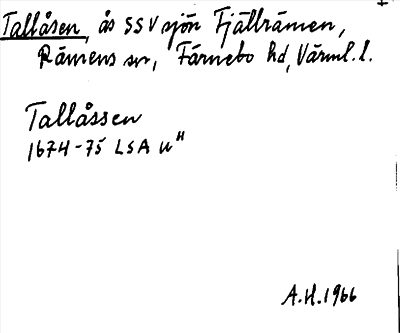 Tallåsen, ås SSV sjön Fjällrämen,
Rämens sn, Färnebo hd, Värml. l.
Tallåssen
1674-75 LSA u"
A.H. 1966